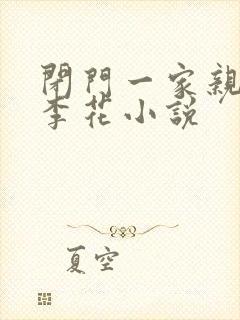 閉門一家親
李花小説
夏空